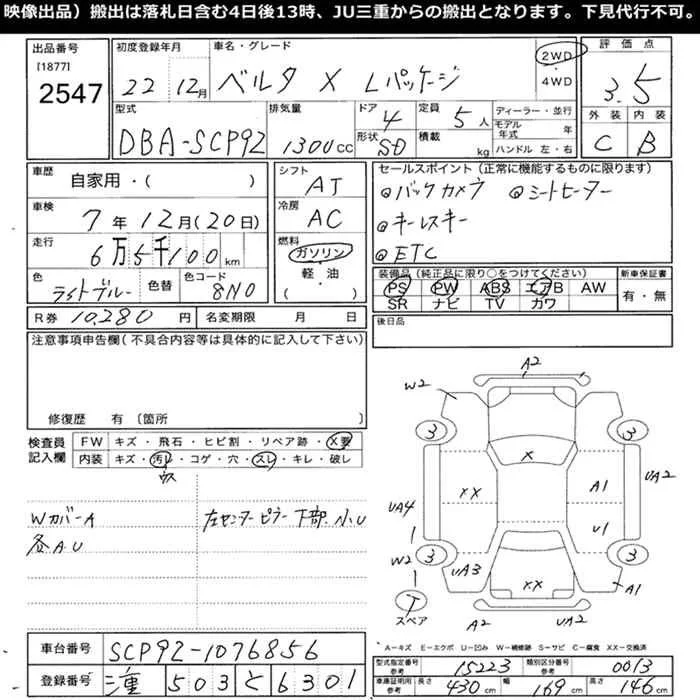 映像出品）搬出は落札日含む4日後13時、JU三重からの搬出となります。下見代行不可。
出品番号
[1877]
2547
初度登録年月
22年12月
車名・グレード
ベルタ X Lパッケージ
2WD
・
4WD
評価点
3.5
外装 内装
C B
型式
DBA-SCP92
排気量
1300CC
ドア 4
形状 SD
定員 5人
積載 kg
ディーラー・並行
モデル年式 年
ハンドル 左・右
車歴
自家用・( )
車検
7年12月(20日)
走行
6万5千100km
色
ライトブルー
色替
色コード
8N0
シフト
AT
冷房
AC
燃料
ガソリン
・
軽・油
( )
セールスポイント（正常に機能するものに限ります）
◎バックカメラ ◎シートヒーター
◎キーレスキー
◎ETC
装備品（純正品に限り○をつけてください）
PS PW ABS エアB AW
SR ナビ TV カワ
新車保証書
有・無
R券 10,280円
名変期限 月 日
後日品
注意事項申告欄(不具合内容等は具体的に記入して下さい)
修復歴 有〔箇所 〕
検査員
記入欄
FW キズ・飛石・ヒビ割・リペア跡・X要
内装 キズ・汚レ・コゲ・穴・スレ・キレ・破レ
ウス
Wカバー A
各A.U
左センターピラー下部 小U
A2
W2
3
3
X
UA2
XX
A1
UA4
U1
W2
3
3
UA3
XX
A1
T
スペア
A2
UA2
車台番号 SCP92-1076856
登録番号 三重 503 と 6301
A＝キズ E＝エクボ U＝凹み W＝補修跡 S＝サビ C＝腐食 XX＝交換済
型式指定番号
参考
15223
類別区分番号
参考
0013
車庫証明用
参考
長さ 430cm 幅 169cm 高さ 146cm